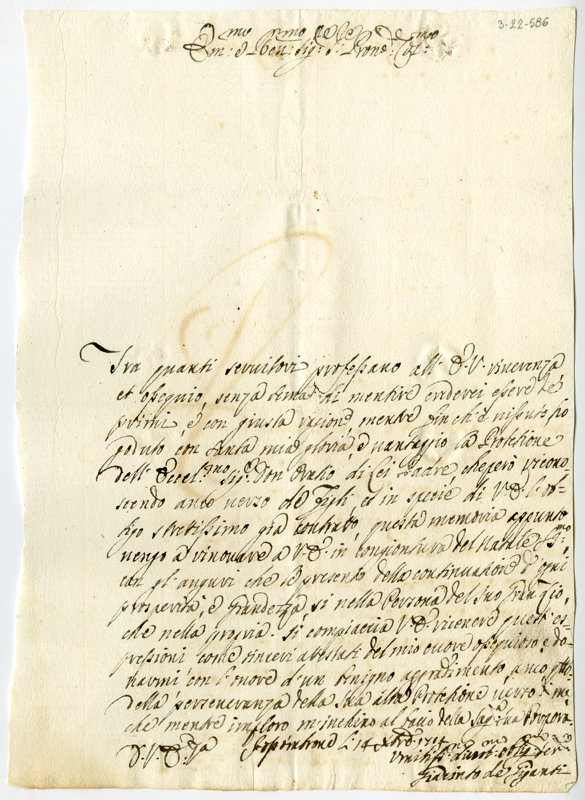 3-22-586
Em.mo e Rev.mo Sig.r Sig.r Prone Col.mo
Tra quanti servitori professano all' E. V. riverenza,
et ossequio, senza tema di mentire crederei essere de
primi, e con giusta ragione, mentre finch'è vissuto ho
goduto con tanta mia gloria, e vantaggio la Protezione
dell' Eccel.mo Sig.r Don Oratio di Lei Padre, che però ricono-
scendo anco verso de Figli, et in specie di V. E. l'ob-
ligo strettissimo già contratto, questa memoria appunto
vengo a rinovare a V. E. in congiontura del Natale S.mo
con gl'auguri che le presento della continuazione d'ogni
prosperità, e grandezza si nella Persona del suo
che nella propria. Si compiaccia V. E. ricevere queste es-
pressioni come sinceri attestati del mio cuore ossequioso, e do-
narmi con l'onore d'un benigno aggradimento anco
della perseveranza della Sua alta Protezione verso di me,
che mentre imploro m'inchino al bacio della Sag.ra Sua Porpora.
D. V. E.za li 14 Xbre 1714
Umiliss.o Devot.mo Obblig.mo Ser.re
Giacinto de Giganti